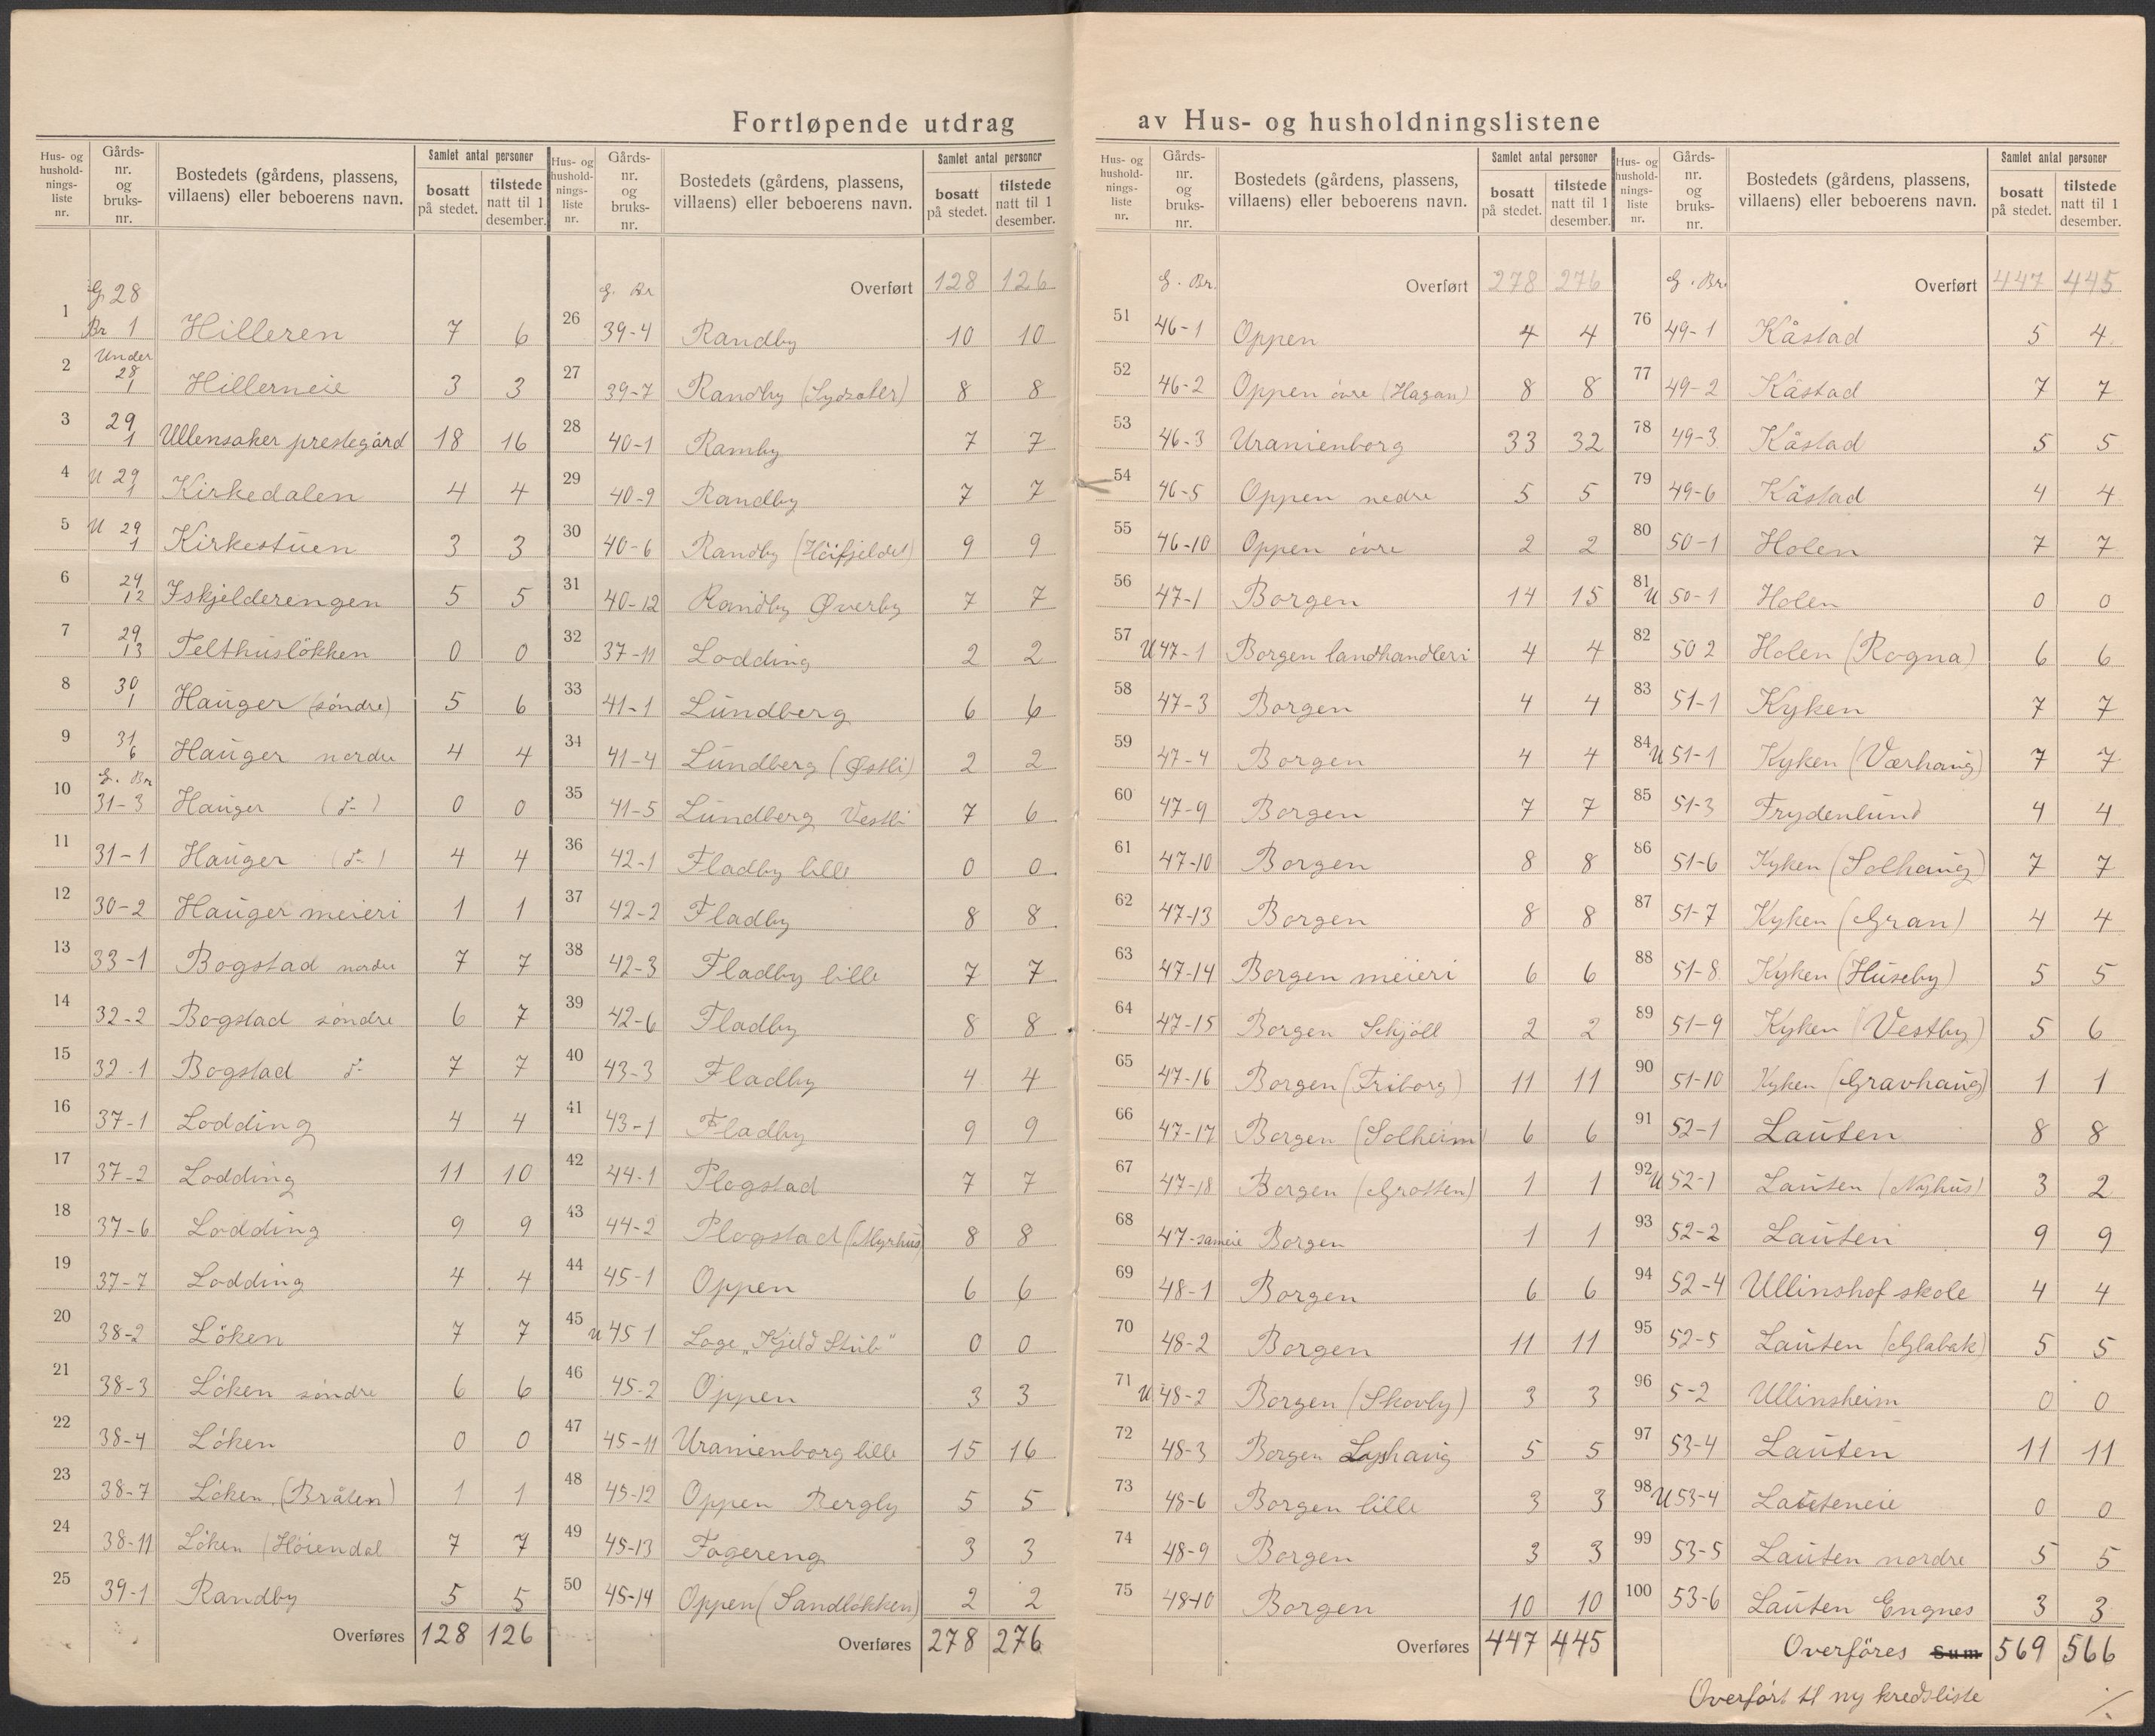 Fortløpende utdrag av Hus- og husholdningslistene
Hus- og hushold-nings-liste nr. | Gårds-nr. og bruks-nr. | Bostedets (gårdens, plassens, villaens) eller beboerens navn. | Samlet antal personer | bosatt på stedet. | tilstede natt til 1 desember.
1 G 28 Br 1 Hilleren 7 6
2 Under 28 1 Hillerneie 3 3
3 29 1 Ullensaker prestegård 18 16
4 U 29 1 Kirkedalen 4 4
5 U 29 1 Kirkestuen 3 3
6 29 12 Iskjelderengen 5 5
7 29 13 Telthusløkken 0 0
8 30 1 Hauger (søndre) 5 6
9 31 6 Hauger nordre 4 4
10 G. Br 31-3 Hauger 0 0
11 31-1 Hauger 4 4
12 30-2 Hauger meieri 1 1
13 33-1 Bogstad nordre 7 7
14 32-2 Bogstad søndre 6 7
15 32-1 Bogstad 7 7
16 37-1 Lodding 4 4
17 37-2 Lodding 11 10
18 37-6 Lodding 9 9
19 37-7 Lodding 4 4
20 38-2 Löken 7 7
21 38-3 Löken söndre 6 6
22 38-4 Löken 0 0
23 38-7 Löken (Bråten) 1 1
24 38-11 Löken (Höiendal 7 7
25 39-1 Randby 5 5
Overføres 128 126
Hus- og hushold-nings-liste nr. | Gårds-nr. og bruks-nr. | Bostedets (gårdens, plassens, villaens) eller beboerens navn. | Samlet antal personer | bosatt på stedet. | tilstede natt til 1 desember.
G. Br Overført 128 126
26 39-4 Randby 10 10
27 39-7 Randby 8 8
28 40-1 Ramby 7 7
29 40-9 Randby 7 7
30 40-6 Randby (Höifjeldet) 9 9
31 40-12 Randby Øverby 7 7
32 37-11 Lodding 2 2
33 41-1 Lundberg 6 6
34 41-4 Lundberg (Østli) 2 2
35 41-5 Lundberg Vestli 7 6
36 42-1 Fladby lille 0 0
37 42-2 Fladby 8 8
38 42-3 Fladby lille 7 7
39 42-6 Fladby 8 8
40 43-3 Fladby 4 4
41 43-1 Fladby 9 9
42 44-1 Plogstad 7 7
43 44-2 Plogstad (Myrhus) 8 8
44 45-1 Oppen 6 6
45 U 45 1 Loge „Kjeld Stub" 0 0
46 45-2 Oppen 3 3
47 45-11 Uranienborg lille 15 16
48 45-12 Oppen Bergly 5 5
49 45-13 Fagereng 3 3
50 45-14 Oppen (Sandløkken) 2 2
Overføres 278 276
Hus- og hushold-nings-liste nr. | Gårds-nr. og bruks-nr. | Bostedets (gårdens, plassens, villaens) eller beboerens navn. | Samlet antal personer | bosatt på stedet. | tilstede natt til 1 desember.
G. Br. Overført 278 276
51 46-1 Oppen 4 4
52 46-2 Oppen övre (Hagan) 8 8
53 46-3 Uranienborg 33 32
54 46-5 Oppen nedre 5 5
55 46-10 Oppen övre 2 2
56 47-1 Borgen 14 15
57 U 47-1 Borgen landhandleri 4 4
58 47-3 Borgen 4 4
59 47-4 Borgen 4 4
60 47-9 Borgen 7 7
61 47-10 Borgen 8 8
62 47-13 Borgen 8 8
63 47-14 Borgen meieri 6 6
64 47-15 Borgen Schjöll 2 2
65 47-16 Borgen (Friborg) 11 11
66 47-17 Borgen (Solheim) 6 6
67 47-18 Borgen (Grotten) 1 1
68 47-sameie Borgen 1 1
69 48-1 Borgen 6 6
70 48-2 Borgen 11 11
71 U 48-2 Borgen (Skovly) 3 3
72 48-3 Borgen Lyshaug 5 5
73 48-6 Borgen lille 3 3
74 48-9 Borgen 3 3
75 48-10 Borgen 10 10
Overføres 447 445
Hus- og hushold-nings-liste nr. | Gårds-nr. og bruks-nr. | Bostedets (gårdens, plassens, villaens) eller beboerens navn. | Samlet antal personer | bosatt på stedet. | tilstede natt til 1 desember.
G. Br. Overført 447 445
76 49-1 Kåstad 5 4
77 49-2 Kåstad 7 7
78 49-3 Kåstad 5 5
79 49-6 Kåstad 4 4
80 50-1 Holen 7 7
81 U 50-1 Holen 0 0
82 50 2 Holen (Rogna) 6 6
83 51-1 Kyken 7 7
84 U 51-1 Kyken (Værhaug) 7 7
85 51-3 Frydenlund 4 4
86 51-6 Kyken (Solhaug) 7 7
87 51-7 Kyken (Gran) 4 4
88 51-8 Kyken (Huseby) 5 5
89 51-9 Kyken (Vestby) 5 6
90 51-10 Kyken (Gravhaug) 1 1
91 52-1 Lauten 8 8
92 U 52-1 Lauten (Nyhus) 3 2
93 52-2 Lauten 9 9
94 52-4 Ullinshof skole 4 4
95 52-5 Lauten (Glabak) 5 5
96 5-2 Ullinsheim 0 0
97 53-4 Lauten 11 11
98 U 53-4 Lauteneie 0 0
99 53-5 Lauten nordre 5 5
100 53-6 Lauten Engnes 3 3
Overföres Sum 569 566
Overført til ny kredsliste